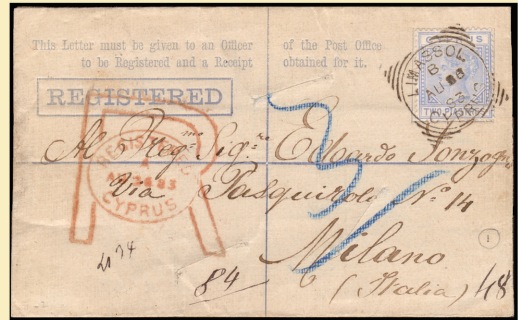 This Letter must be given to an Officer of the Post Office
to be Registered and a Receipt obtained for it.
REGISTERED
LIMASSOL
CYPRUS
REGISTERED
CYPRUS
Al Reg.mo Sig.re Edoardo Sonzogno
Via Pasquirolo No. 14
Milano
(Italia)
84
48
1